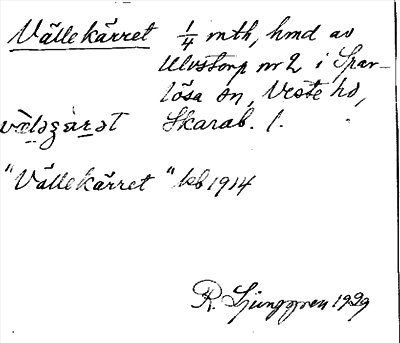 Vällekärret 1/4 mtl, hmd av
Ulvstorp nr 2 i Spar-
lösa sn, Viste hd,
Skarab. l.
"Vällekärret" kb 1914
R. Ljunggren 1929